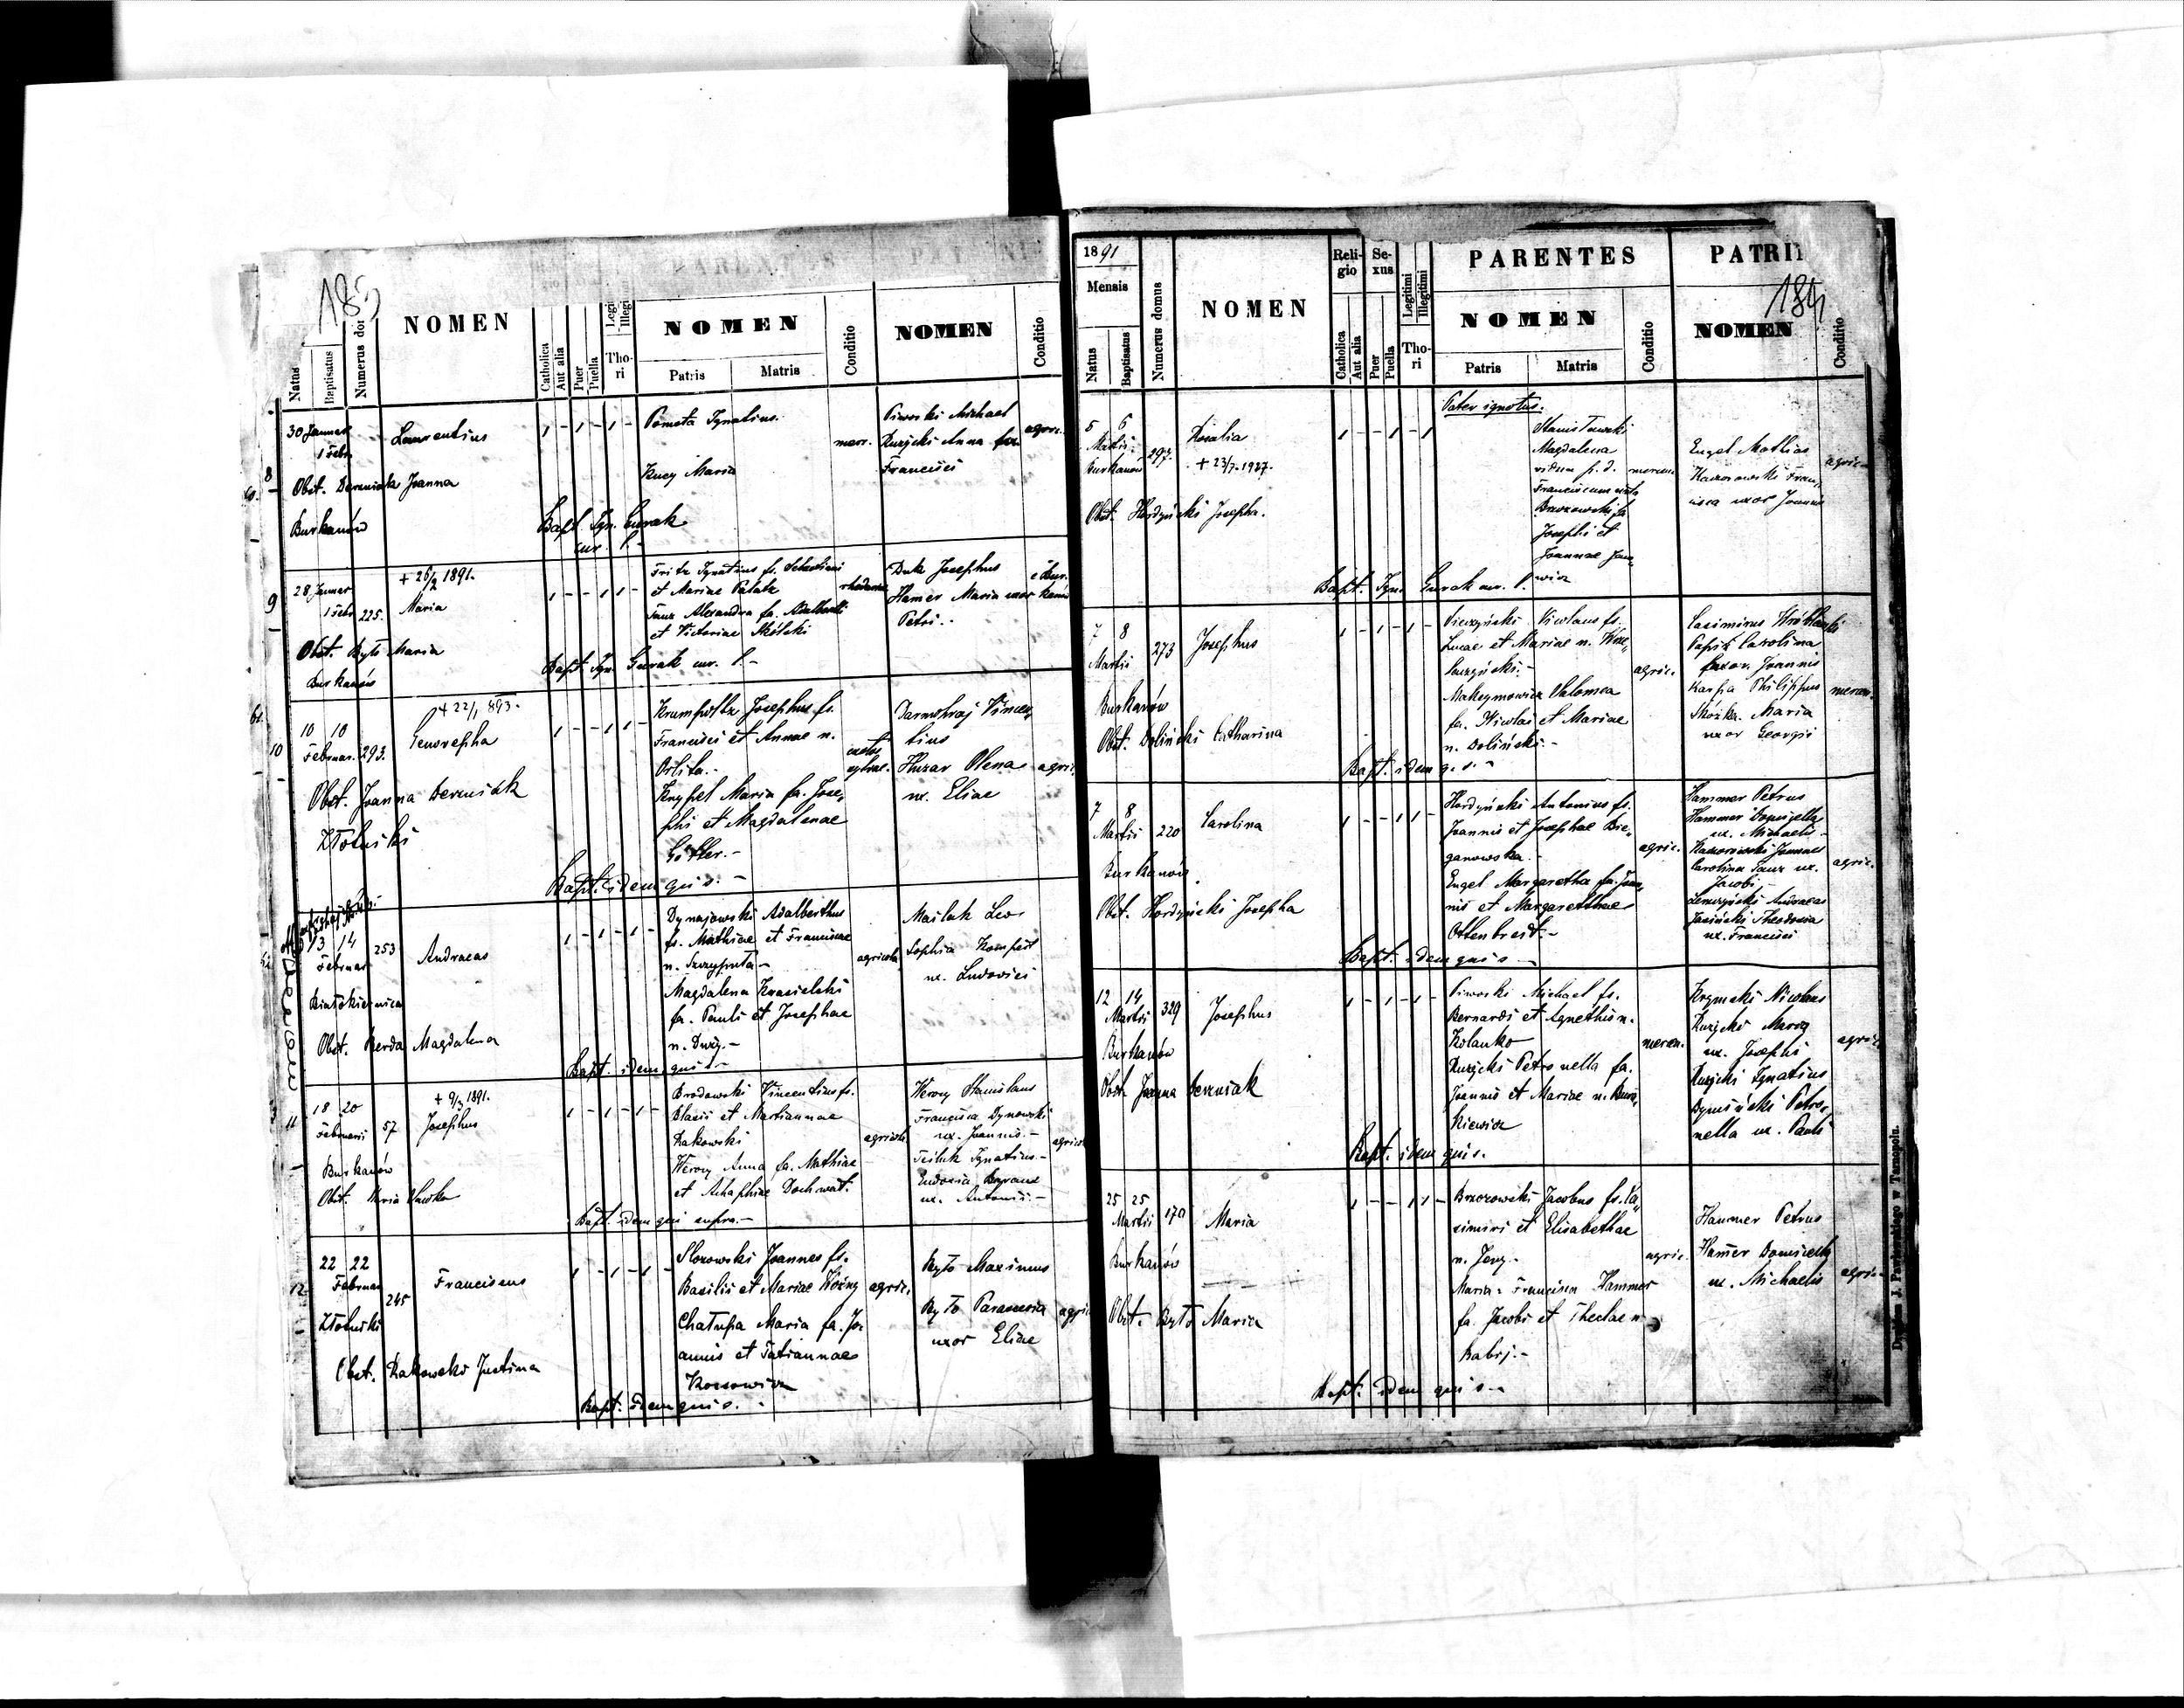 PARENTES
NOMEN
Natus
Baptisatus
Numerus dom
Catholica
Aut alia
Puer
Puella
Legi
Illegi
Tho-
ri
NOMEN
Patris
Matris
Conditio
NOMEN
Conditio
8
30 Januar
1 Febr.
Laurentius
Pometa Ignatius
Kucy Maria
merc.
Piworski Michael
Ruzycki Anna
Francisci
agric.
Obst. Dereniak Joanna
Burkanów
Bapt. Ign. Gurak
cur. l.
9
28 Januar
1 Febr. 225.
+ 25/2 1891.
Maria
Fritz Ignatius fs. Sebastiani
et Mariae Palatz
Janz Alexandra fa. Adalberti
et Victoriae Skólski
Duk Josephus
Hamer Maria uxor
Petri.
Obst. Byto Maria
Burkanów
Bapt. Ign. Gurak cur. l.
10
10 10
Februar. 293.
+ 22/1 893.
Genovepha
Krumpholtz Josephus fs.
Francisci et Annae n.
Orlita.
Knypel Maria fa. Jose,
phi et Magdalenae
Götler.
Darmohraj Vincen,
tius
Huzar Olena
ux. Eliae
agric.
Obst. Joanna Dereniak
Złotniki
Bapt. idem qui s.
13 14
Februar
253
Andraeas
Dynajowski Adalberthus
fs. Mathiae et Franciscae
n. Szczyputa
Magdalena Krasielski
fa. Pauli et Josephae
n. Duży.
agricola
Maślak Leo
Sophia Kompert
ux. Ludovici
Białokiernica
Obst. Berda Magdalena
Bapt. idem qui s.
11
18 20
Februarii
57
+ 9/3 1891.
Josephus
Brodowski Vincentius fs.
Blasii et Mariannae
Rakowski
Werwy Anna fa. Mathiae
et Achaphiae Dochwat.
agricola
Werwy Stanislaus
Francisca Dynowski
ux. Joannis.
Teśluk Ignatius
Eudoxia Baran
ux. Antonii.
Burkanów
Obst. Maria Huska
Bapt. idem qui supra.
12
22 22
Februar
245
Franciscus
Słozowski Joannes fs.
Basilii et Mariae Woźny
Chatupa Maria fa. Jo,
annis et Tatiannae
Kossowicz
agric.
Byto Maximus
Byto Parascevia
uxor Eliae
agric
Złotniki
Obst. Rakowski Justina
Bapt. idem qui s.
1891
Mensis
Natus
Baptisatus
Numerus domus
NOMEN
Reli-
gio
Se-
xus
Catholica
Aut alia
Puer
Puella
Legitimi
Illegitimi
Tho-
ri
PARENTES
NOMEN
Patris
Matris
Conditio
PATRI
184
NOMEN
Conditio
Pater ignotus.
5 6
Martii
Burkanów
297.
Rosalia
+ 23/7. 1927.
Stanisławski
Magdalena
vidua p. d.
Franciscum
Brzozowski fa
Josephi et
Joannae Jan,
wicz
mercen.
Engel Mathias
Kaczorowski Fran,
cisca uxor Joannis
agric.
Obst. Hordyński Josepha.
Bapt. Ign. Gurak cur. l.
7 8
Martii
273
Josephus
Wieczyński Nicolaus fs.
Lucae et Mariae n.
Maksymowicz Salomea
fa. Nicolai et Mariae
n. Doliński.
agric.
Casimirus Wróblewski
Papiż Carolina
uxor. Joannis
Karpa Philippus
Skózka Maria
uxor Georgii
mercen.
Burkanów
Obst. Doliński Catharina
Bapt. idem q. s.
7 8
Martii
220
Carolina
Hordyński Antonius fs.
Joannis et Josephae Bie,
ganowska.
Engel Margaretha fa. Joan,
nis et Margarethae
Ottenbreit.
agric.
Hammer Petrus
Hammer Domicella
ux. Michaelis
Kaczorowski Joannes
Carolina Janz ux.
Jacobi
Lenczyński Andraeas
Jasiński Theodosia
ux. Francisci
agric.
Burkanów
Obst. Hordyński Josepha
Bapt. idem qui s.
12 14
Martii
329
Josephus
Piworski Michael fs.
Bernardi et Agnethis n.
Kolanko
Ruzycki Petronella fa.
Joannis et Mariae n. Bura,
kiewicz
mercen.
Krynicki Nicolaus
Ruzycki Maria
ux. Josephi
Ruzycki Ignatius
Petro,
nella ux. Pauli
agric.
Burkanów
Obst. Joanna Dereniak
Bapt. idem qui s.
25 25
Martii
170
Maria
Brzozowski Jacobus fs. Ca,
simiri et Elisabethae
n. Jerzy.
Maria Francisca Hammer
fa. Jacobi et Theclae n.
Babij.
agric.
Hammer Petrus
Hamer Domicella
ux. Michaelis
agric.
Burkanów
Obst. Byto Maria
Bapt. idem qui s.
Drukiem J. Pawłowskiego w Tarnopolu.